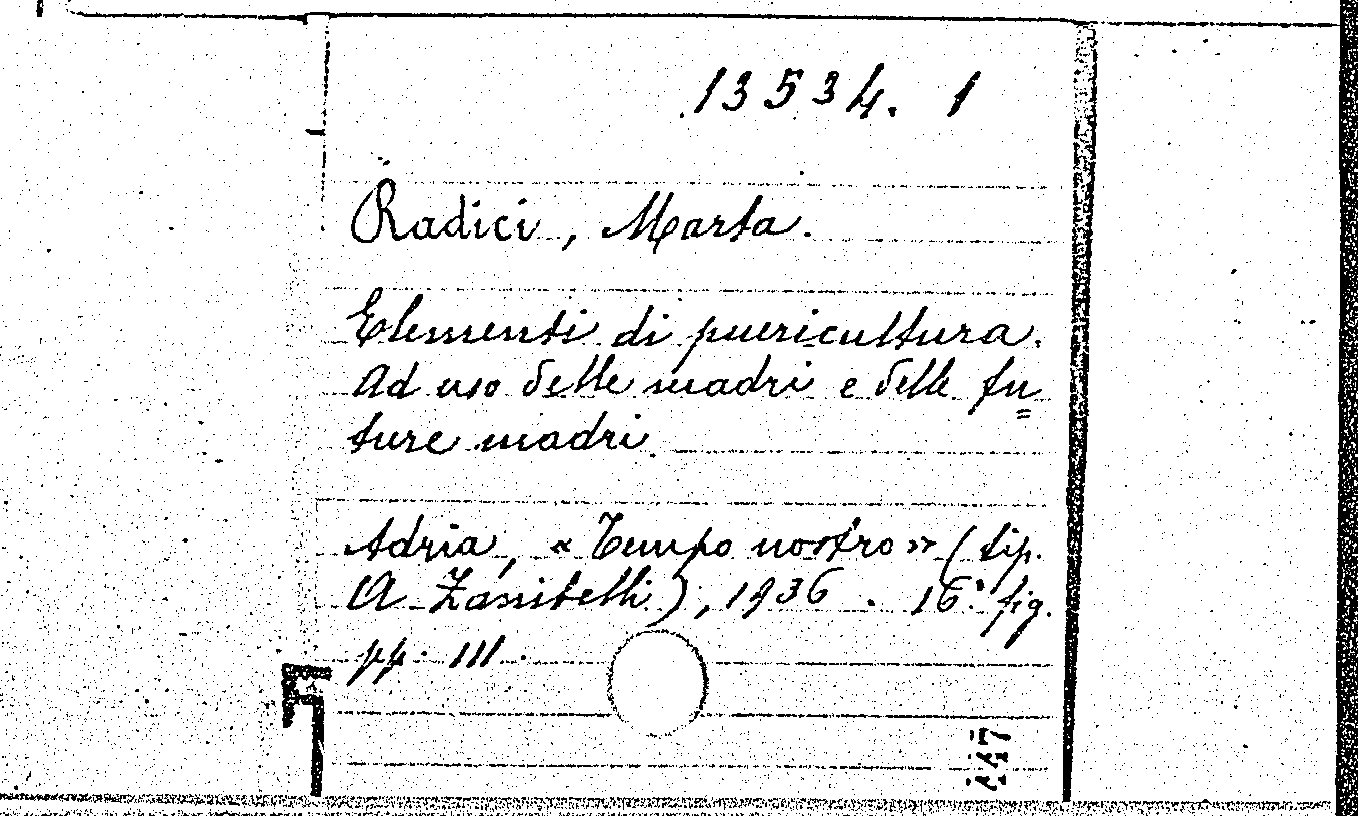 13534. 1
Radici, Marta.
Elementi di puericultura.
Ad uso delle madri e delle fu=
ture madri.
Adria, « Tempo nostro » (tip.
A. Zanibelli), 1936. 16° fig.
pp. 111.